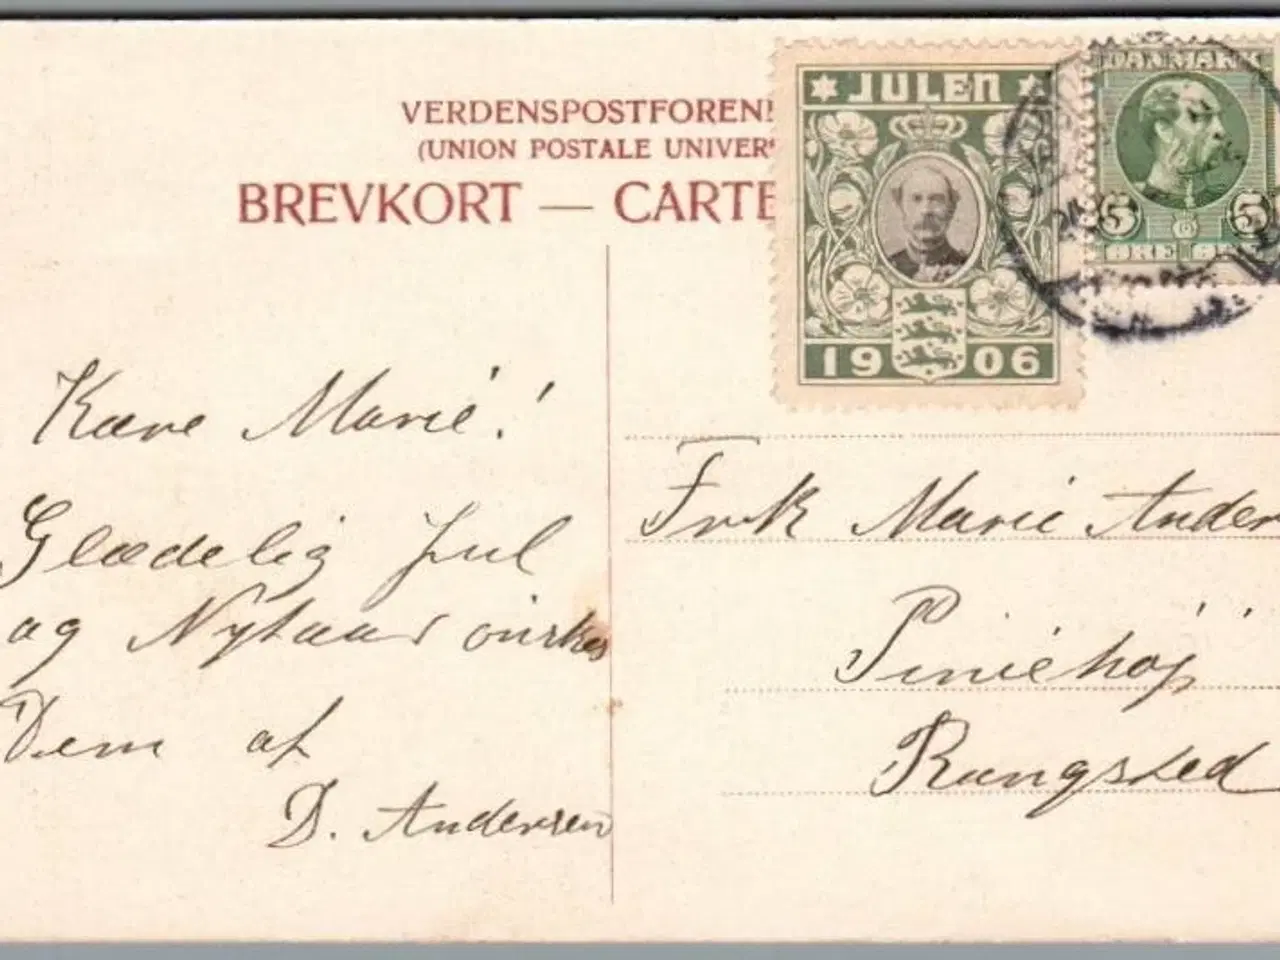 VERDENSPOSTFOREN
(UNION POSTALE UNIVER
BREVKORT — CARTE
JULEN
1906
DANMARK
5 5
ØRE
Kære Marie!
Glædelig Jul
og Nytaar ønskes
Dem af
D. Andersen
Frk Marie Ander
Piniehøj
Rungsted